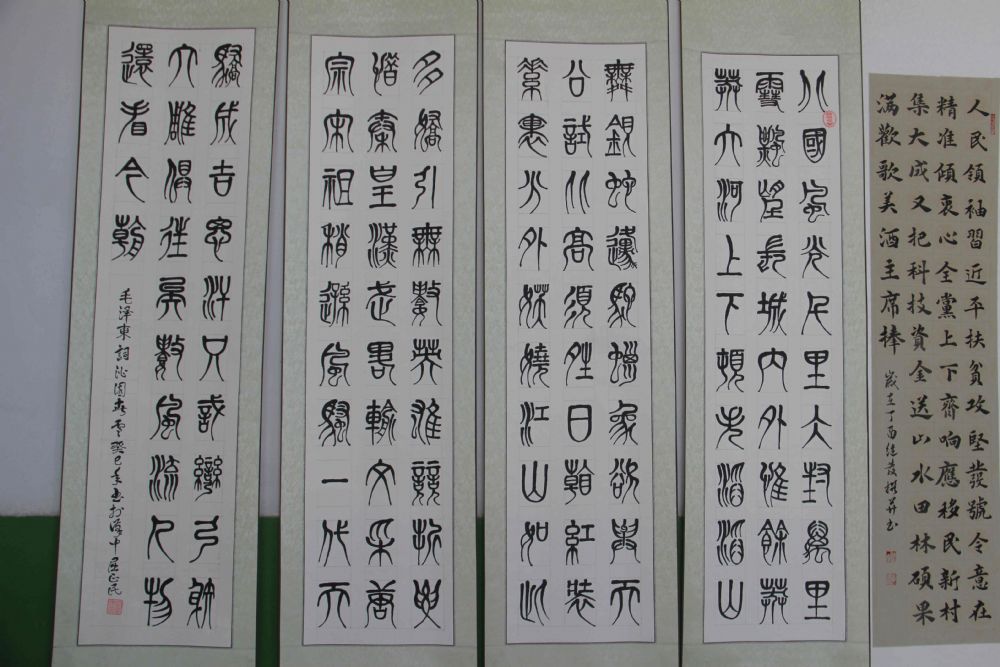 人民領袖習近平扶貧攻堅發號令意在
精准傾衷心全黨上下齊响應移民新村
集大成又把科技資金送山水田林碩果
滿歡歌美酒主席捧
歲在丁酉
北國風光千里冰封萬里
雪飄望長城內外惟餘莽
莽大河上下頓失滔滔山
舞銀蛇原馳蠟象欲與天
公試比高須晴日看紅裝
素裹分外妖嬈江山如此
多嬌引無數英雄競折腰
惜秦皇漢武略輸文采唐
宗宋祖稍遜風騷一代天
驕成吉思汗只識彎弓射
大雕俱往矣數風流人物
還看今朝
毛澤東詞沁園春雪癸巳年書於洛中屈正民